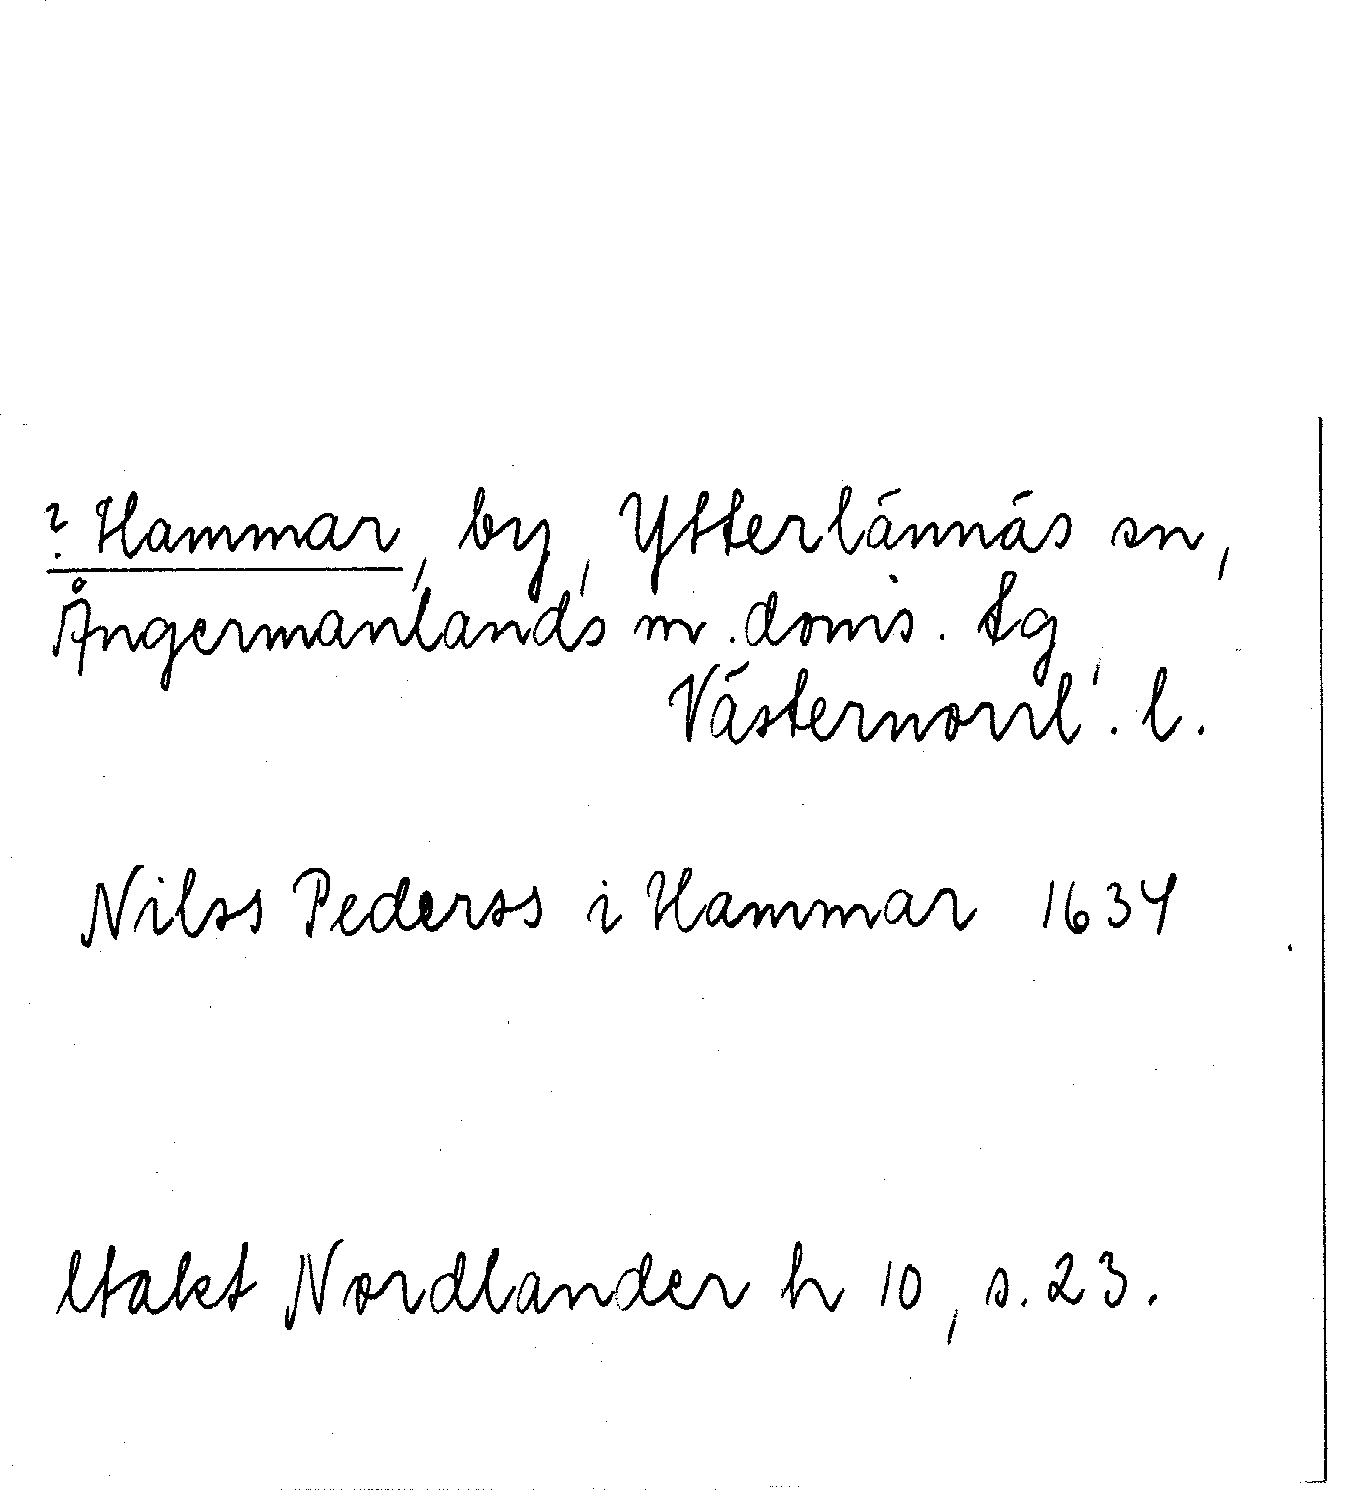 ? Hammar, by, Ytterlännäs sn,
Ångermanlands m. doms. tg
Västernorrl. l.
Nilss Pederss i Hammar 1634
Utakt Nordlander h 10, s. 23.